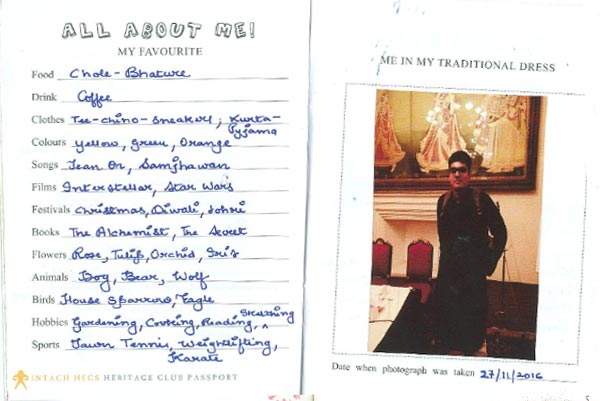 ALL ABOUT ME!
MY FAVOURITE
Food Chole-Bhature
Drink Coffee
Clothes Tee-chino-sneakers; Kurta-
Pyjama
Colours Yellow, Green, Orange
Songs Samjhawan
Films Interstellar, Star Wars
Festivals Christmas, Diwali, Lohri
Books The Alchemist, The Secret
Flowers Rose, Tulip, Orchid, Iris
Animals Dog, Bear, Wolf
Birds House Sparrow, Eagle
Hobbies Gardening, Cooking, Reading, Sketching
Sports Lawn Tennis, Weightlifting,
Karate
INTACH HECS HERITAGE CLUB PASSPORT
ME IN MY TRADITIONAL DRESS
Date when photograph was taken 27/11/2016
5